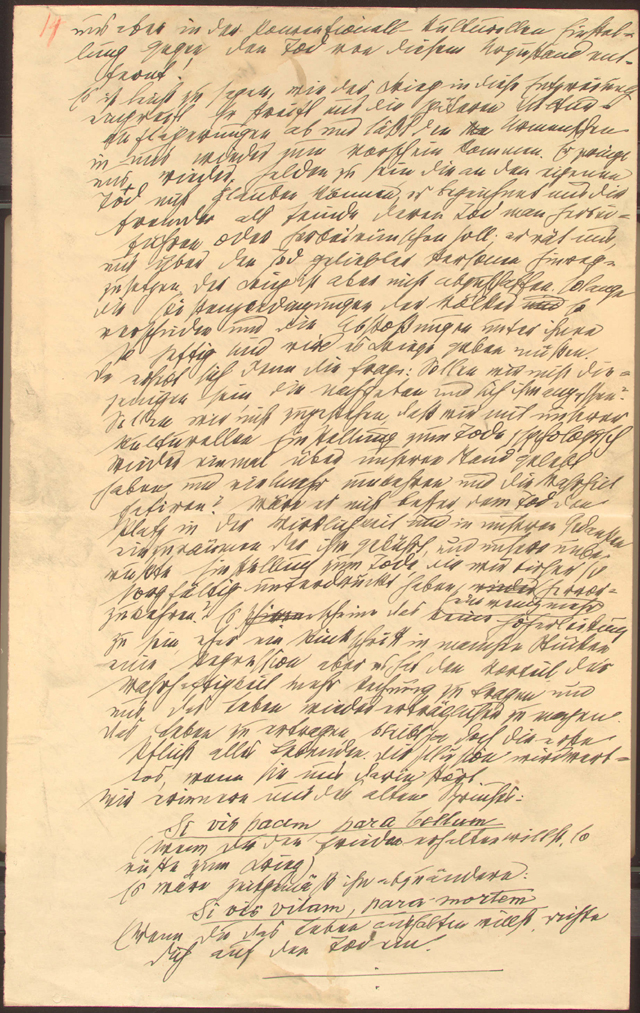 14
uns aber in der konventionell-kulturellen Einstel-
lung gegen den Tod von diesem Urzustand ent-
fernt!
Es ist leicht zu sagen, wie der Krieg in diese Entzweiung
eingreift. Er streift uns die späteren Kultur-
auflagerungen ab und läßt den Urmenschen
in uns wieder zum Vorschein kommen. Er zwingt
uns wieder, Helden zu sein die an den eigenen
Tod nicht glauben können, er bezeichnet uns die
Fremden als Feinde deren Tod man herbei-
führen oder herbeiwünschen soll; er rät uns,
uns über den Tod geliebter Personen hinweg-
zusetzen. Der Krieg ist aber nicht abzuschaffen. Solange
die Existenzbedingungen der Völker so
verschieden und die Abstoßungen unter ihnen
so heftig sind wird es Kriege geben müssen.
Da erhebt sich denn die Frage: Sollen wir nicht die-
jenigen sein die nachgeben und sich ihm anpassen?
Sollen wir nicht zugestehen, daß wir mit unserer
kulturellen Einstellung zum Tode psychologisch
wieder einmal über unseren Stand gelebt
haben und vielmehr umkehren und die Wahrheit
fatiren? Wäre es nicht besser dem Tod den
Platz in der Wirklichkeit und in unseren Gedanken
einzuräumen der ihm gebührt, und unsere unbe-
wußte Einstellung zum Tode, die wir bisher so
sorgfältig unterdrückt haben, hervor-
ein wenig mehr
zukehren? Es scheint das keine Höherleistung
zu sein eher ein Rückschritt in manchen Stücken
eine Regression aber es hat den Vorteil der
Wahrhaftigkeit mehr Rechnung zu tragen und
uns das Leben wieder erträglicher zu machen.
Das Leben zu ertragen bleibt ja doch die erste
Pflicht aller Lebenden. Die Illusion wird wert-
los, wenn sie uns darin stört.
Wir erinnern uns des alten Spruches:
Si vis pacem para bellum
(Wenn du den Frieden erhalten willst, so
rüste zum Krieg)
Es wäre zeitgemäß ihn abzuändern:
Si vis vitam, para mortem
(Wenn du das Leben aushalten willst, richte
dich auf den Tod ein.